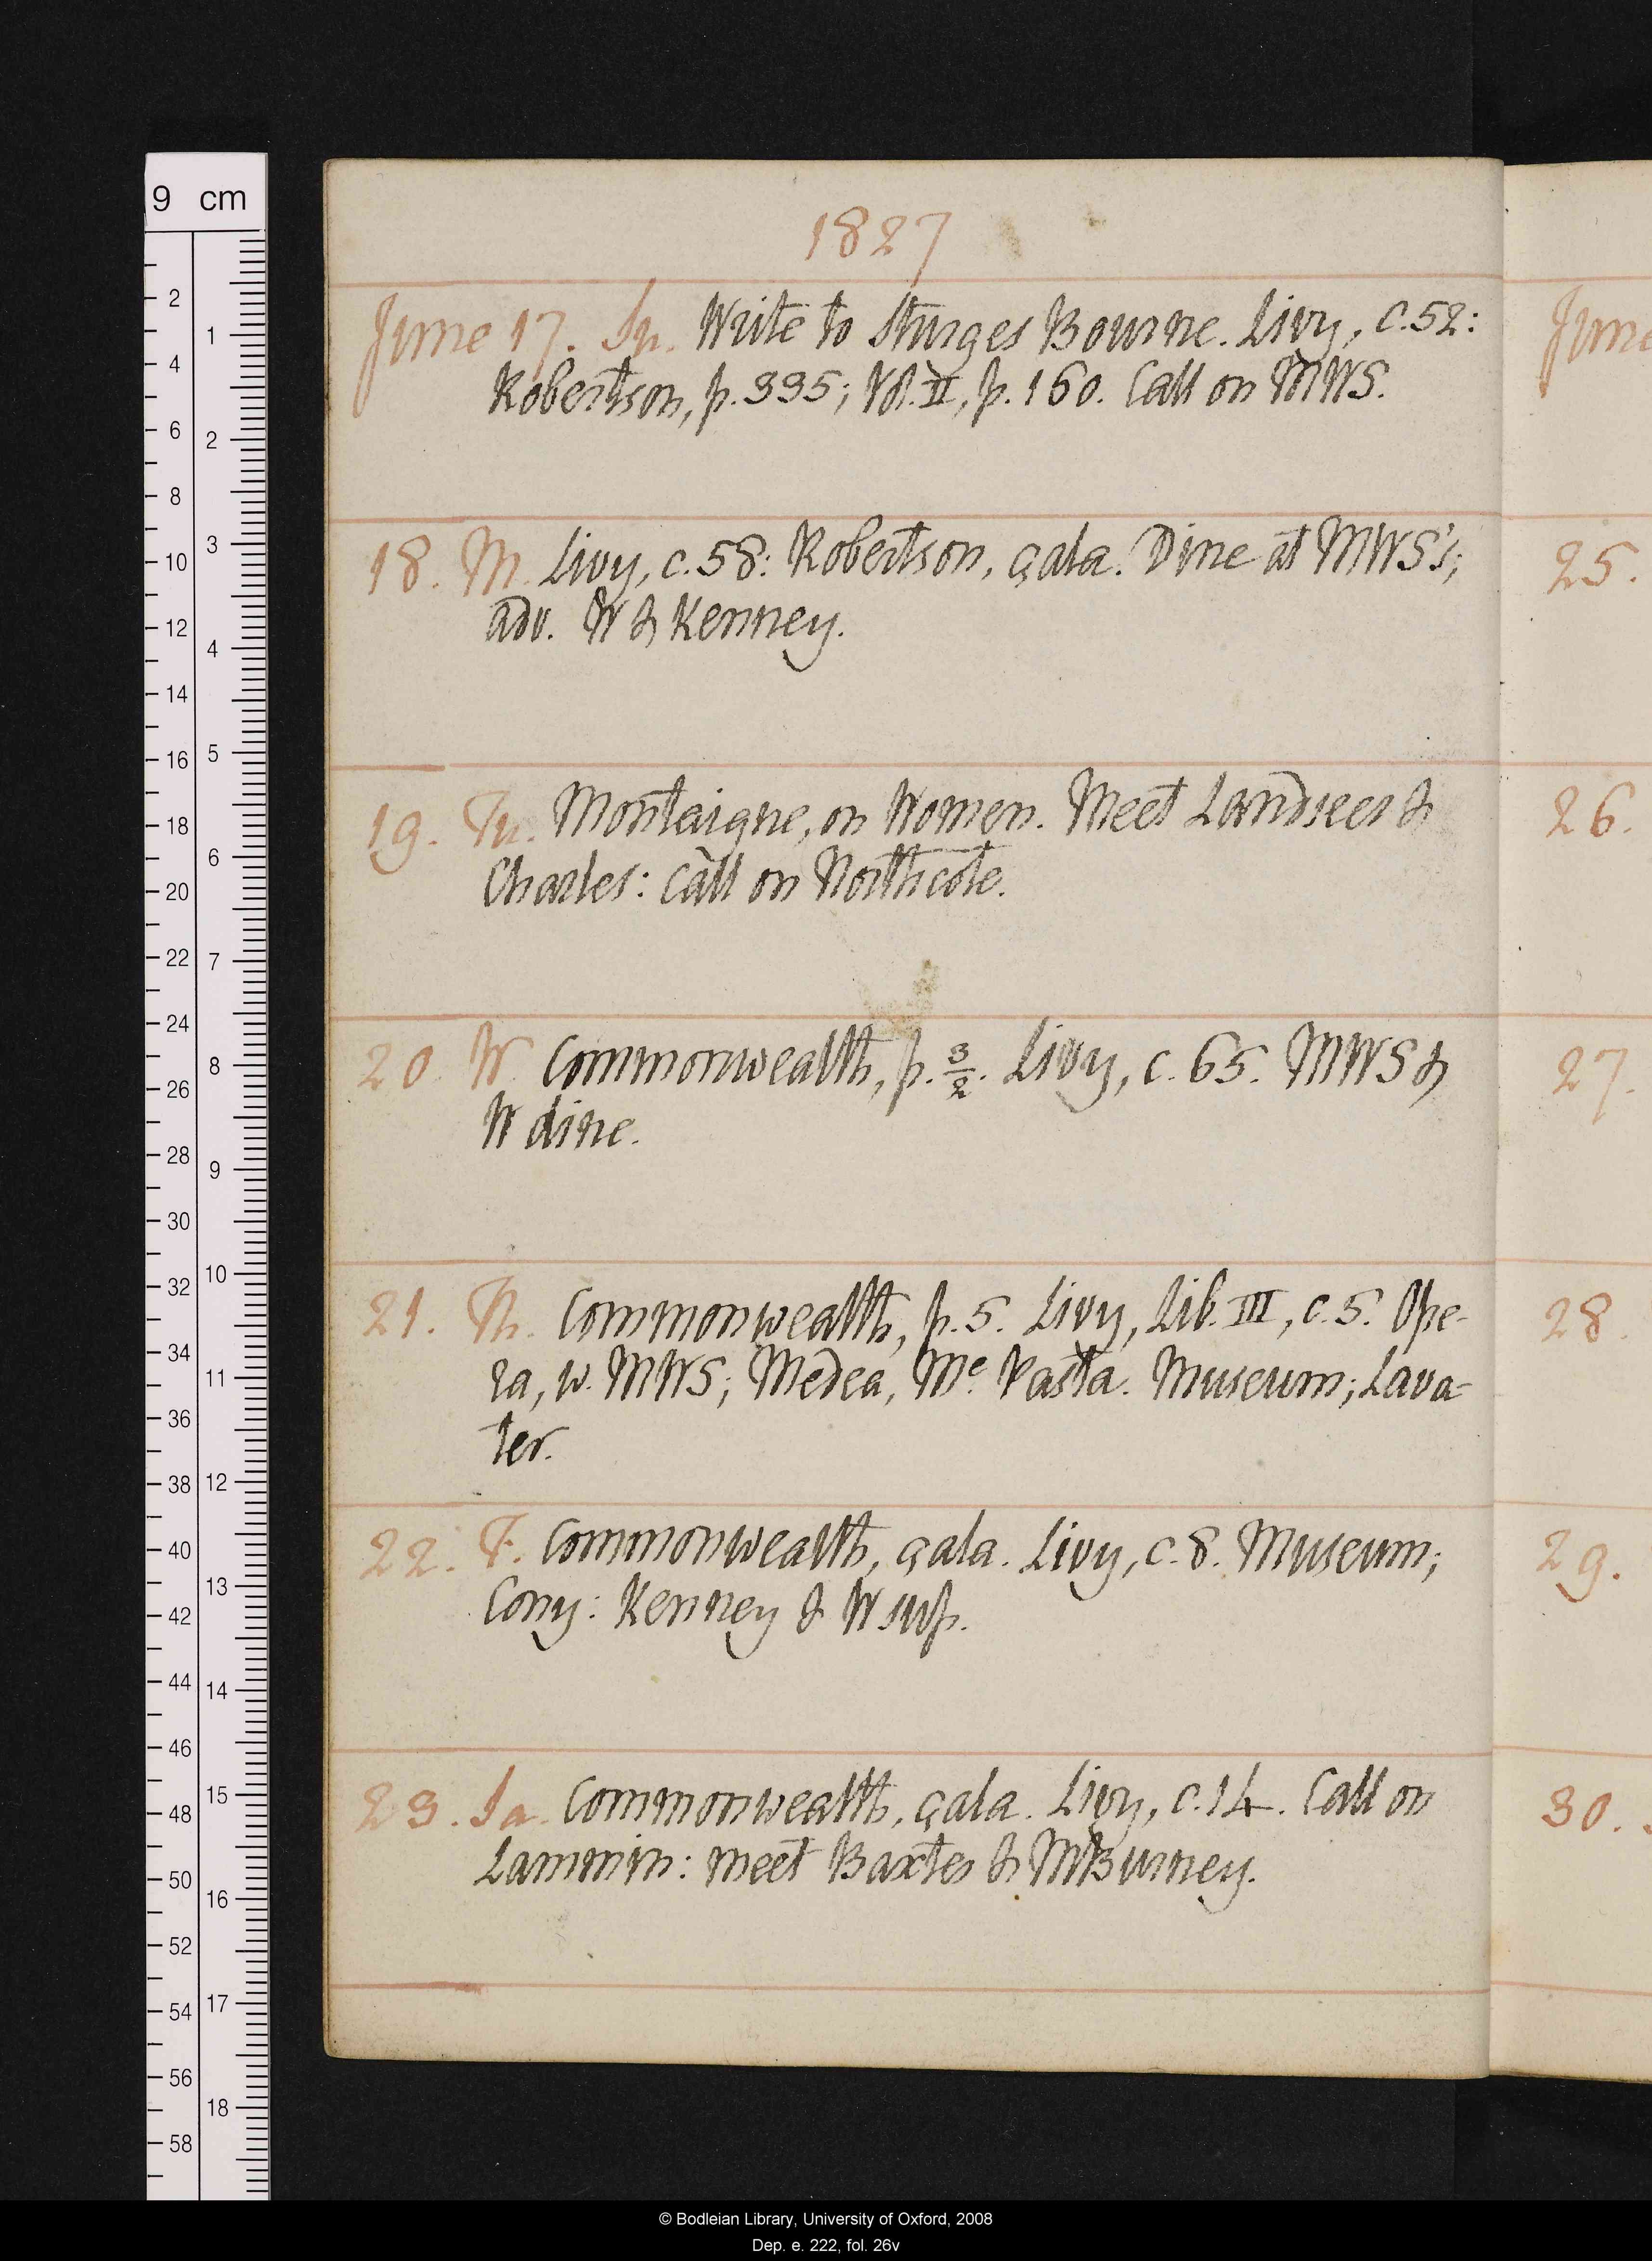 1827
June 17. Su. Write to Sturges Bourne. Livy, c. 52:
Robertson, p. 335; Vol. II, p. 160. Call on MWS.
18. M. Livy, c. 58: Robertson, çala. Dine at MWS's;
adv. W & Kenney.
19. Tu. Montaigne, on Women. Meet Landseer &
Charles: call on Northcote.
20. W. Commonwealth, p. 3/2. Livy, c. 65. MWS &
W dine.
21. Th. Commonwealth, p. 5. Livy, Lib. III, c. 5. Ope-
ra, w. MWS; Medea, Me. Pasta. Museum; Lava-
ter.
22. F. Commonwealth, çala. Livy, c. 8. Museum;
Cony: Kenney & W sup.
23. Sa. Commonwealth, çala. Livy, c. 14. Call on
Lammin: meet Baxter & MBurney.
June
25.
26.
27.
28.
29.
30.
9 cm
2
4
6
8
10
12
14
16
18
20
22
24
26
28
30
32
34
36
38
40
42
44
46
48
50
52
54
56
58
1
2
3
4
5
6
7
8
9
10
11
12
13
14
15
16
17
18
© Bodleian Library, University of Oxford, 2008
Dep. e. 222, fol. 26v